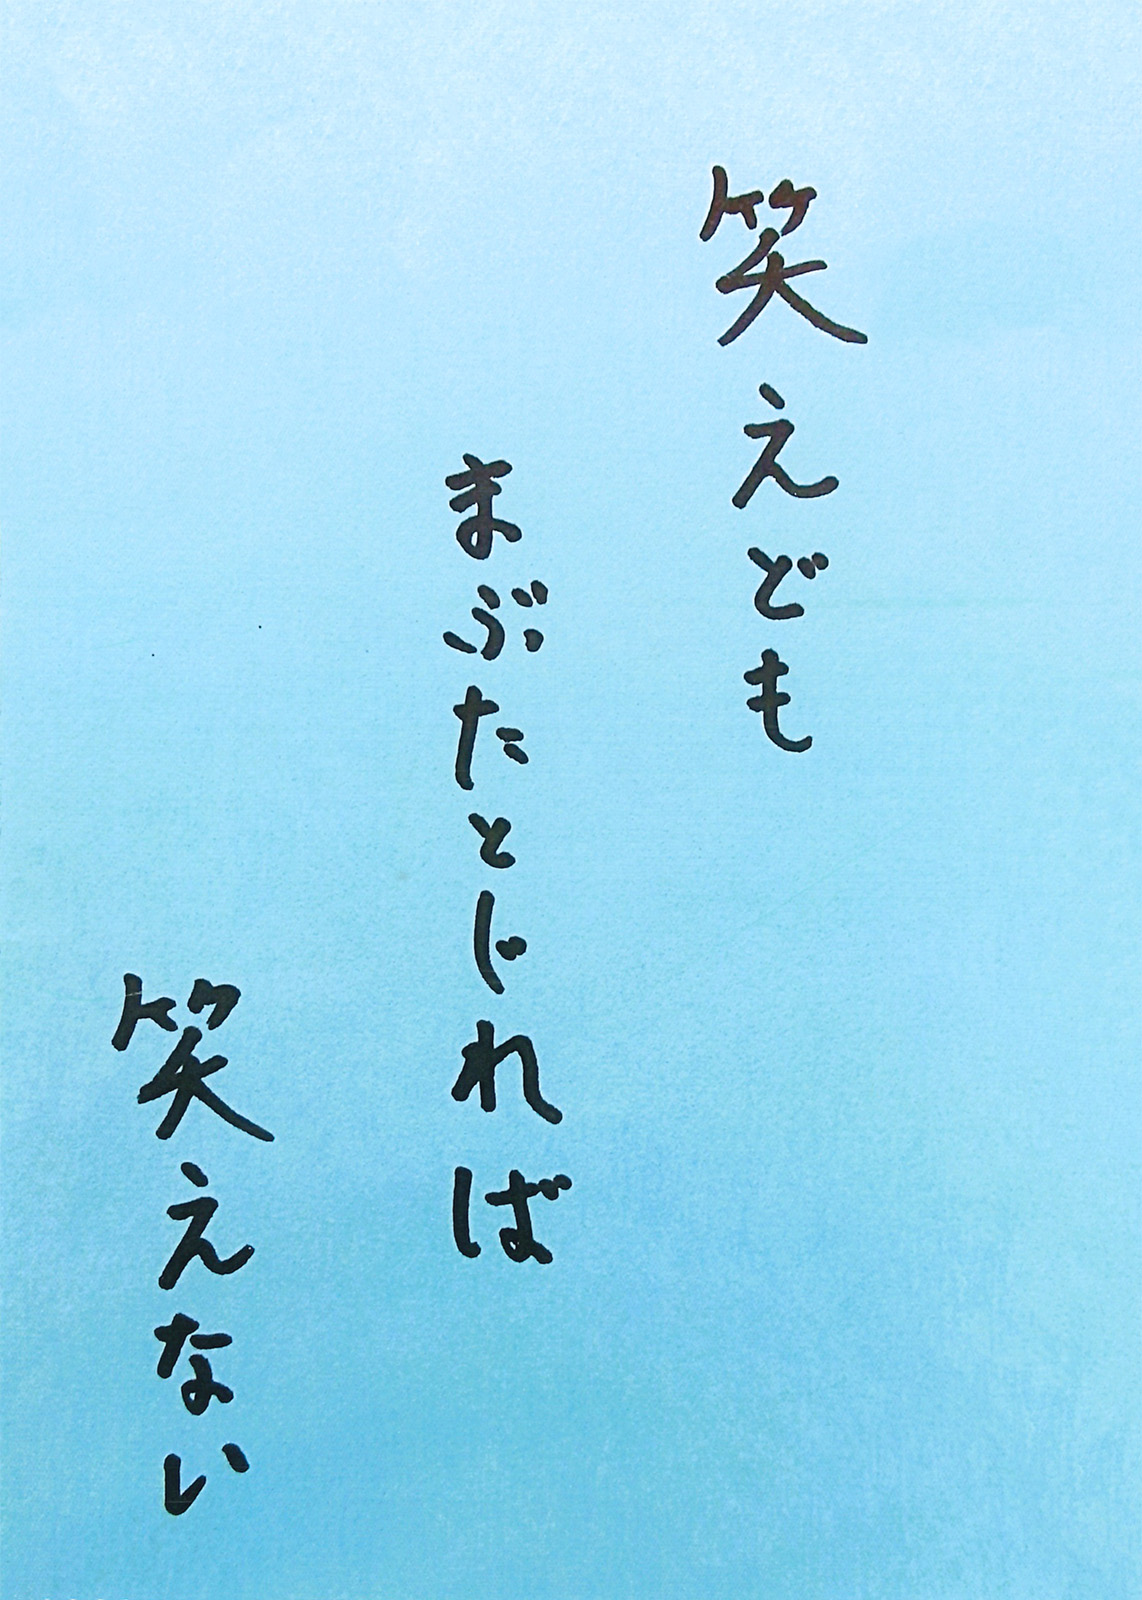 笑えども
まぶたとじれば
笑えない